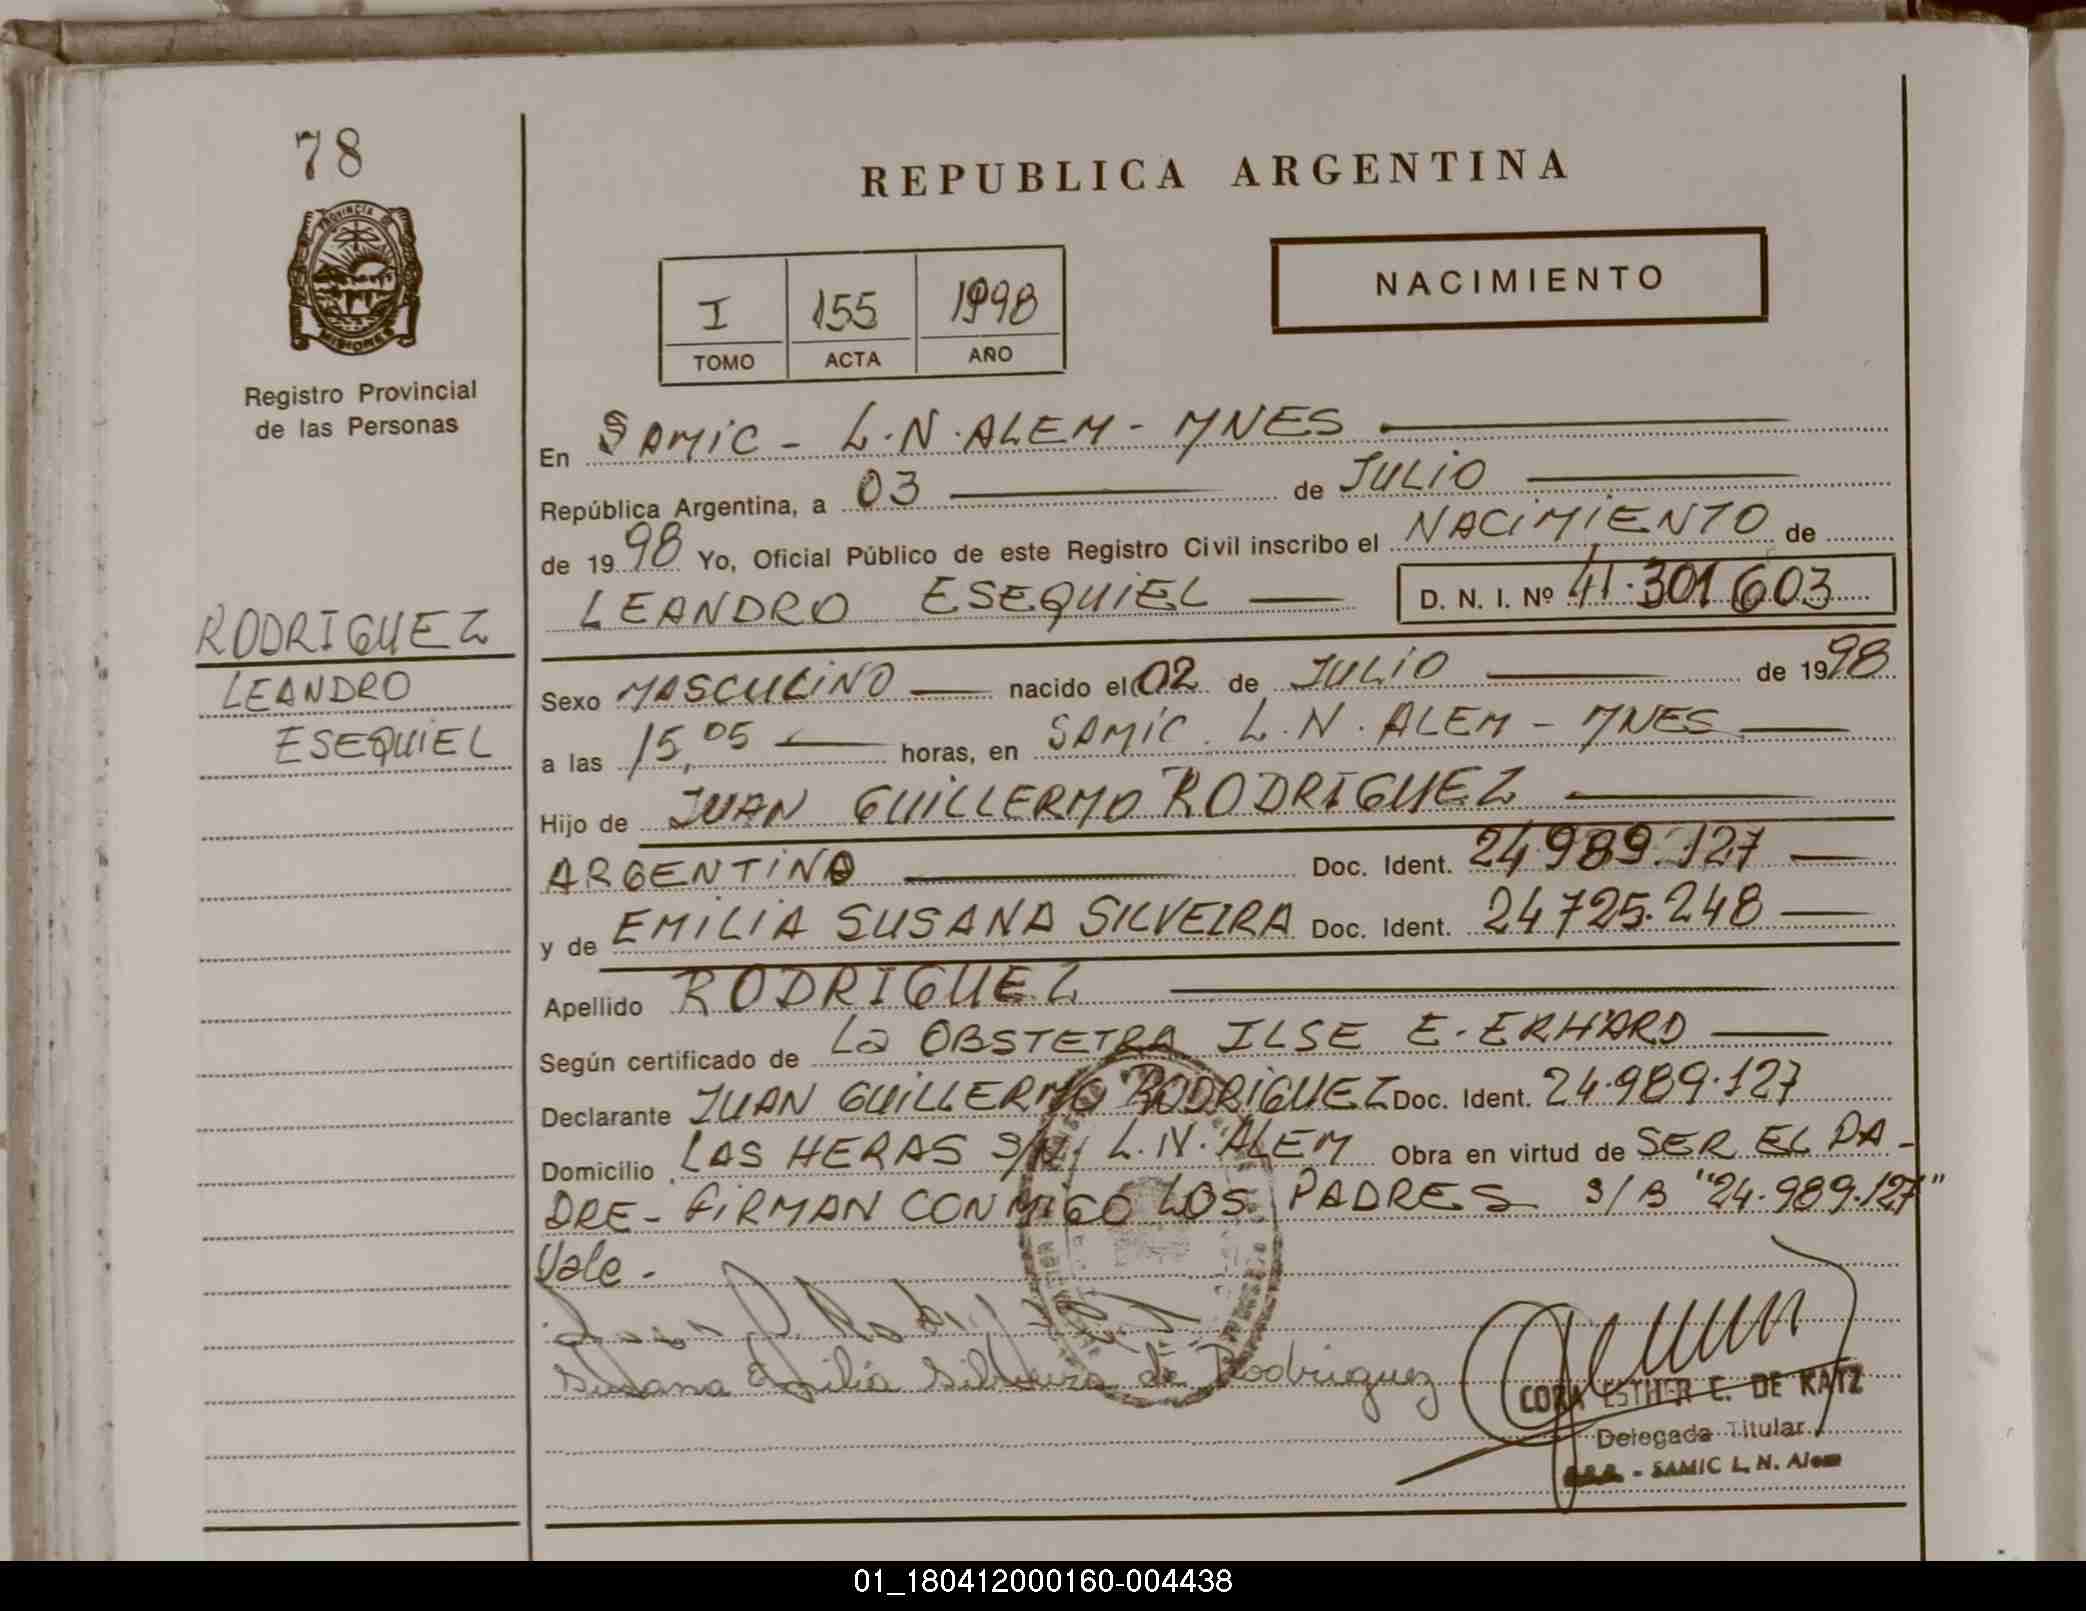 78
REPUBLICA ARGENTINA
PROVINCIA DE
MISIONES
I 155 1998
TOMO ACTA AÑO
NACIMIENTO
Registro Provincial
de las Personas
En SAMIC - L.N. ALEM - MNES
República Argentina, a 03 de JULIO
de 1998 Yo, Oficial Público de este Registro Civil inscribo el NACIMIENTO de
LEANDRO ESEQUIEL D. N. I. Nº 41.301603
RODRIGUEZ
LEANDRO
ESEQUIEL
Sexo MASCULINO nacido el 02 de JULIO de 1998
a las 15,05 horas, en SAMIC. L.N. ALEM - MNES
Hijo de JUAN GUILLERMO RODRIGUEZ
ARGENTINO Doc. Ident. 24.989.127
y de EMILIA SUSANA SILVEIRA Doc. Ident. 24725.248
Apellido RODRIGUEZ
Según certificado de La OBSTETRA ILSE E. ERHARD
Declarante JUAN GUILLERMO RODRIGUEZ Doc. Ident. 24.989.127
Domicilio LAS HERAS S/N, L.N. ALEM Obra en virtud de SER EL PA-
DRE - FIRMAN CONMIGO LOS PADRES S/B "24.989.127"
Vale.
Susana Emilia Silveira de Rodriguez
CORA ESTHER C. DE KATZ
Delegada Titular
- SAMIC L. N. Alem
01_180412000160-004438